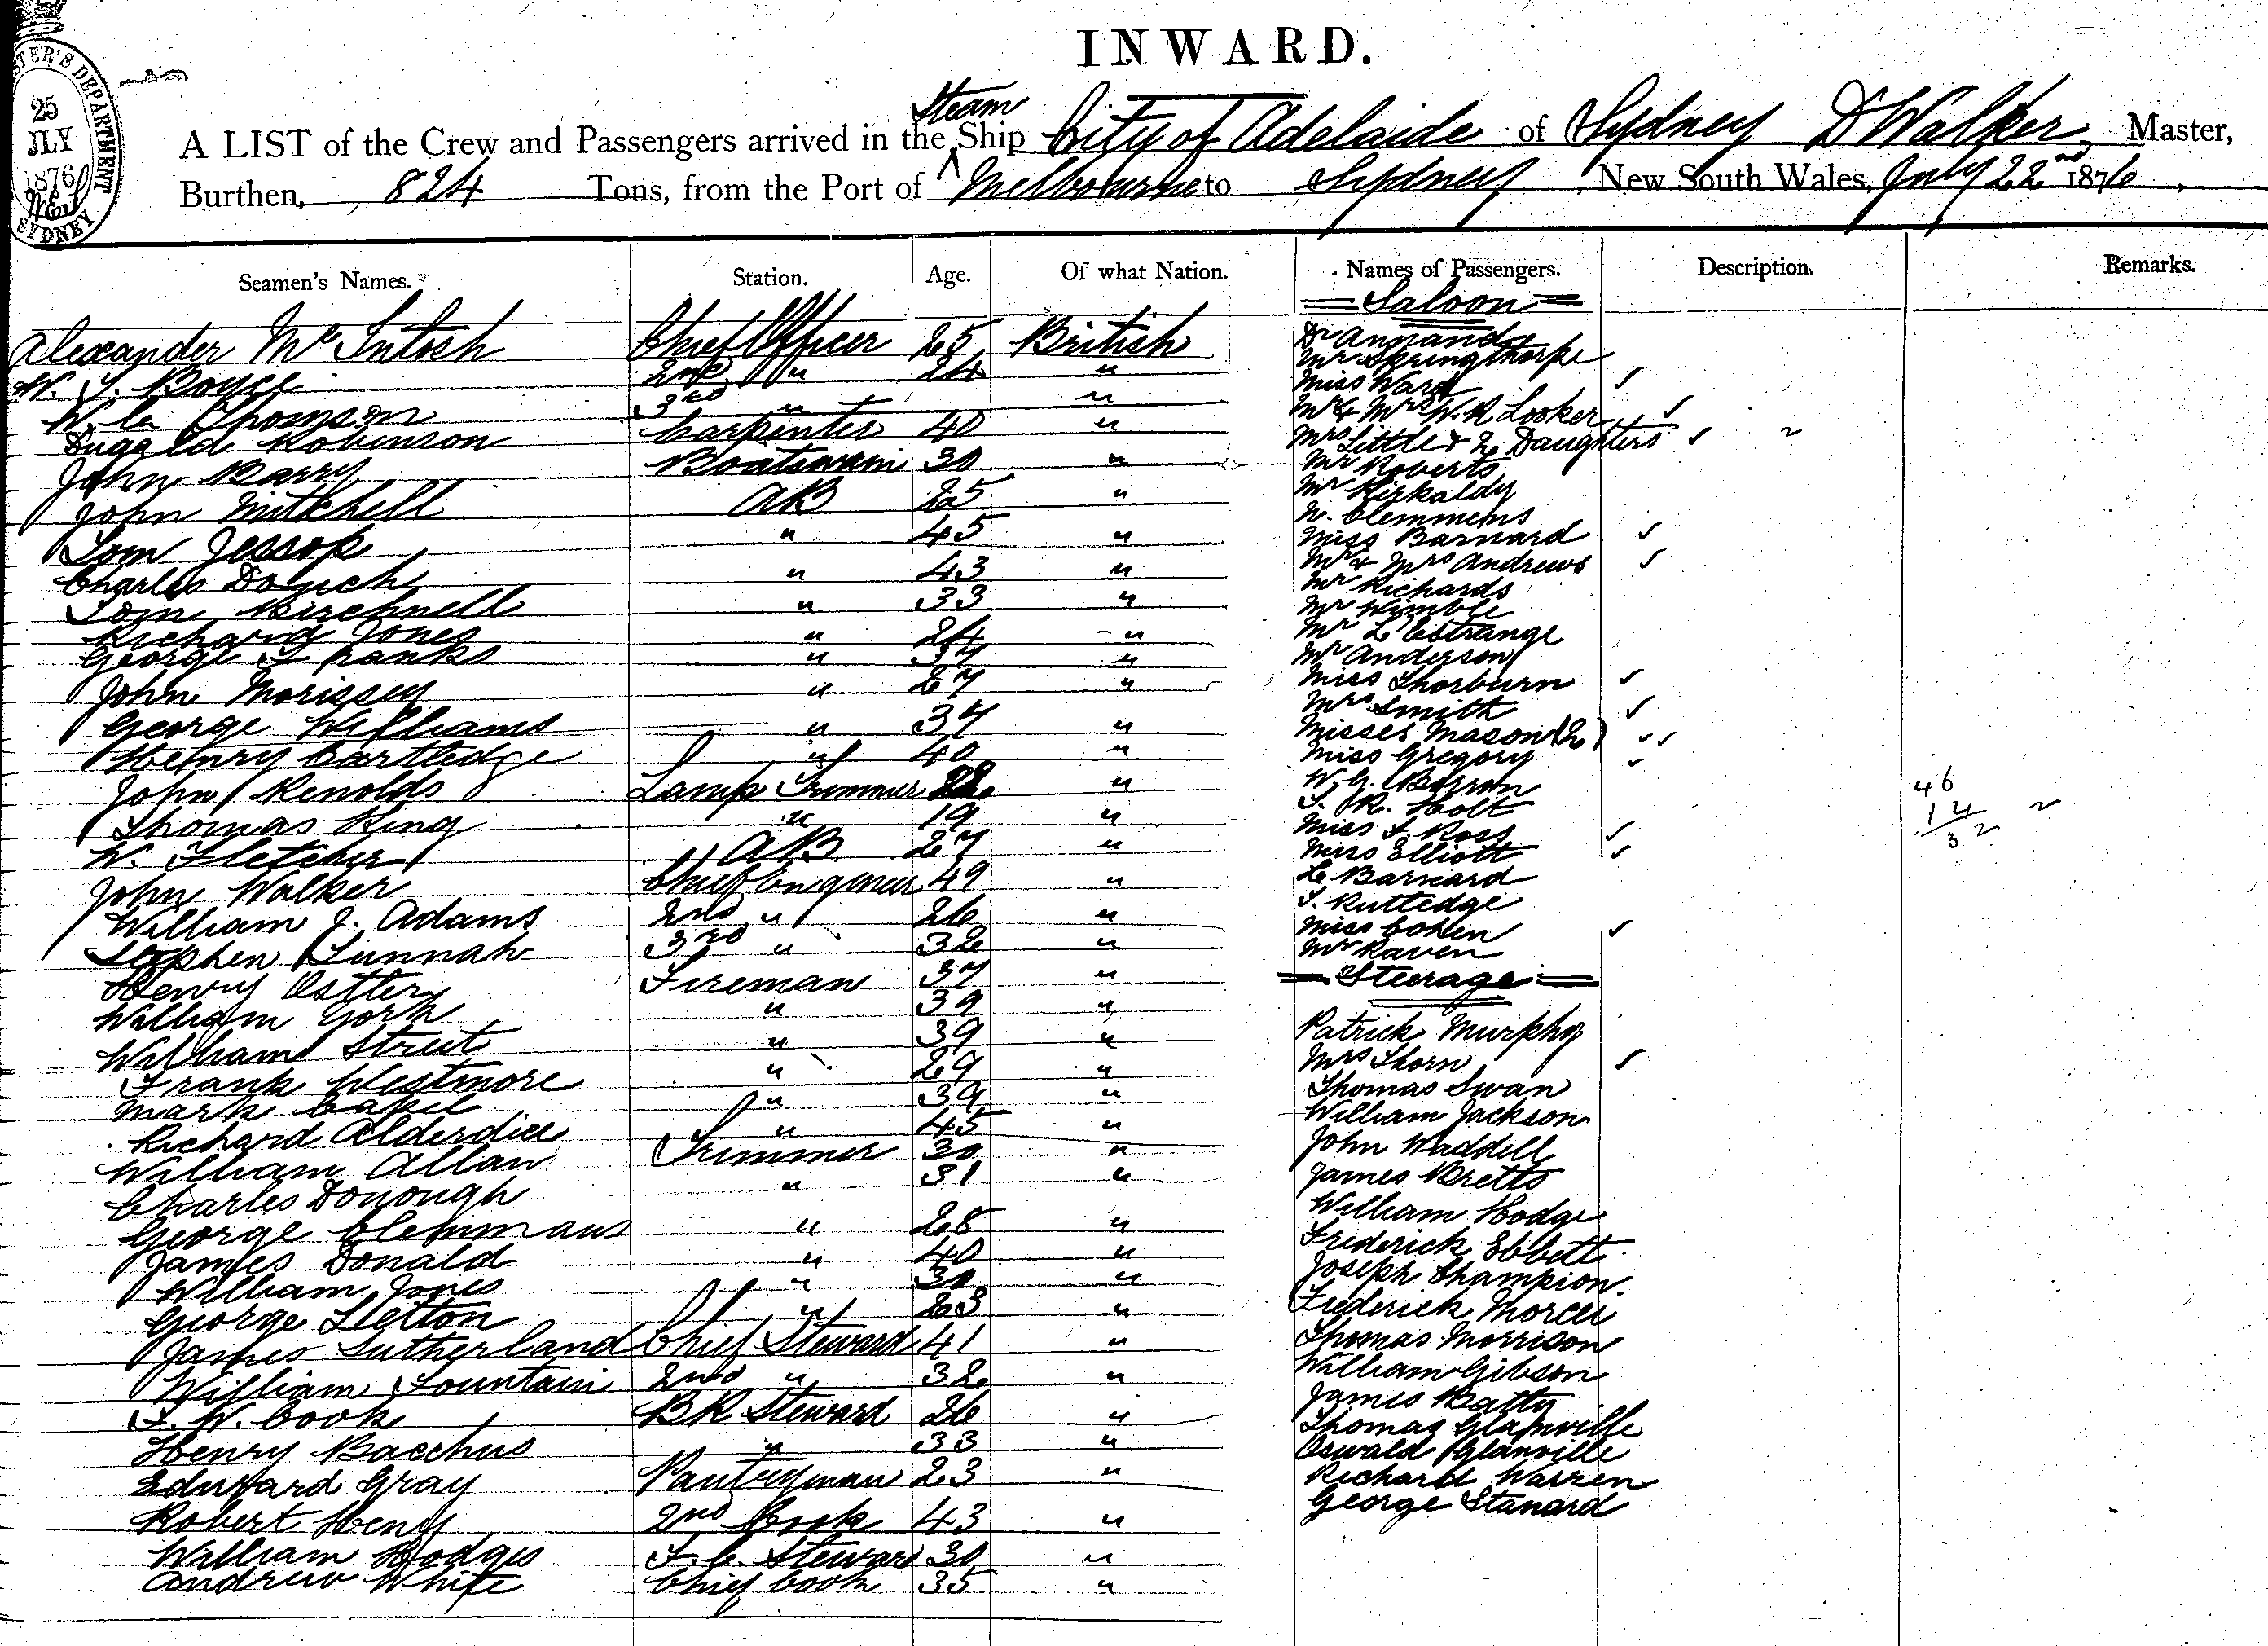 INWARD.
Steam
A LIST of the Crew and Passengers arrived in the ^ Ship City of Adelaide of Sydney D Walker, Master,
Burthen, 824 Tons, from the Port of Melbourne to Sydney, New South Wales, July 22nd 1876.
25
JLY
1876
SYDNEY
Seamen's Names. Station. Age. Of what Nation. Names of Passengers. Description. Remarks.
Saloon
Alexander McIntosh Chief Officer 25 British Dr Annand
W. J. Boyce 2nd " 24 " Mr Springthorpe
Miss Ward ✓
W. Thomson 3rd " " Mr & Mrs W. R. Looker ✓
Dugald Robinson Carpenter 40 " Mrs Little & 2 Daughters ✓
John Barry Boatswain 30 " Mr Roberts
John Mitchell AB 25 " Mr Kirkaldy
W. Clemmens
Tom Jessop " 45 " Miss Barnard ✓
Charles " 43 " Mr & Mrs Andrews ✓
Mr Richards
Tom Birchnell " 33 " Mr Wimble
Richard Jones " 24 " Mr L'Estrange
George Franks " 37 " Mr Anderson
John Morissey " 27 " Miss Thorburn ✓
George Williams " 37 " Mrs Smith ✓
Misses Mason (2) ✓✓
Henry Cartledge " 40 " Miss Gregory ✓
John Renolds Lamp Trimmer 22 " W. G. Barron
46
T. R. Holt
14
Thomas King " 19 " Miss F. Ross ✓
32
W. Fletcher AB 27 " Miss Elliott ✓
John Walker Chief Engineer 49 " L. Barnard
William J. Adams 2nd " 26 " T. Ruttedge
Miss Cohen ✓
Stephen Lunnah 3rd " 32 " Mr Raven
Henry Ostler Fireman 37 " Steerage
William York " 39 "
William Street " 39 " Patrick Murphy
Frank Westmore " 29 " Mrs Thorn ✓
Mark Capel " 39 " Thomas Swan
Richard Alderdice " 45 " William Jackson
William Allan Trimmer 30 " John Waddell
Charles Donough " 31 " James Bretts
George Clemmans " 28 " William Hodge
James Donald " 40 " Frederick Ebbett
William Jones " 30 " Joseph Champion.
George Sletton " 23 " Frederick Morcer
James Sutherland Chief Steward 41 " Thomas Morrison
William Fountain 2nd " 32 " William Gibson
F. W. Cook BR Steward 26 " James Batty
Thomas Glanville
Henry Bacchus " 33 " Oswald Glanville
Edward Gray Pantryman 23 " Richard Warren
Robert Heny 2nd Cook 43 " George Stanard
William Hodges F. C. Steward 30 "
Andrew White Chief Cook 35 "